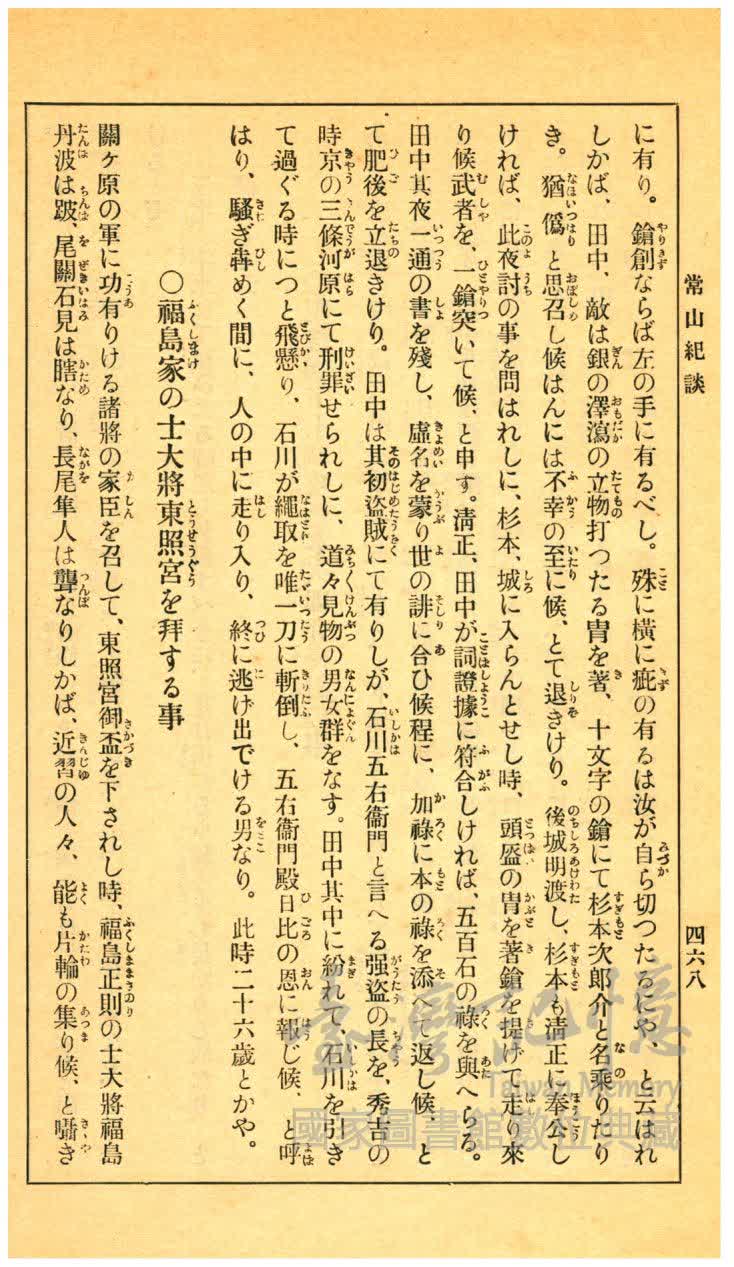 常山紀談
四六八
に有り。鎗創ならば左の手に有るべし。殊に橫に疵の有るは汝が自ら切つたるにや、と云はれ
しかば、田中、敵は銀の澤瀉の立物打つたる冑を著、十文字の鎗にて杉本次郞介と名乘りたり
き。猶僞と思召し候はんには不幸の至に候、とて退きけり。後城明渡し、杉本も淸正に奉公し
ければ、此夜討の事を問はれしに、杉本、城に入らんとせし時、頭盔の冑を著鎗を提げて走り來
り候武者を、一鎗突いて候、と申す。淸正、田中が詞證據に符合しければ、五百石の祿を與へらる。
田中其夜一通の書を殘し、虛名を蒙り世の誹に合ひ候程に、加祿に本の祿を添へて返し候、と
て肥後を立退きけり。田中は其初盜賊にて有りしが、石川五右衞門と言へる强盜の長を、秀吉の
時京の三條河原にて刑罪せられしに、道々見物の男女群をなす。田中其中に紛れて、石川を引き
て過ぐる時につと飛懸り、石川が繩取を唯一刀に斬倒し、五右衞門殿日比の恩に報じ候、と呼
はり、騷ぎ犇めく間に、人の中に走り入り、終に逃げ出でける男なり。此時二十六歲とかや。
〇福島家の士大將東照宮を拜する事
關ヶ原の軍に功有りける諸將の家臣を召して、東照宮御盃を下されし時、福島正則の士大將福島
丹波は跛、尾關石見は瞎なり、長尾隼人は聾なりしかば、近習の人々、能も片輪の集り候、と囁き
臺灣記憶
Taiwan Memory
國家圖書館數位典藏